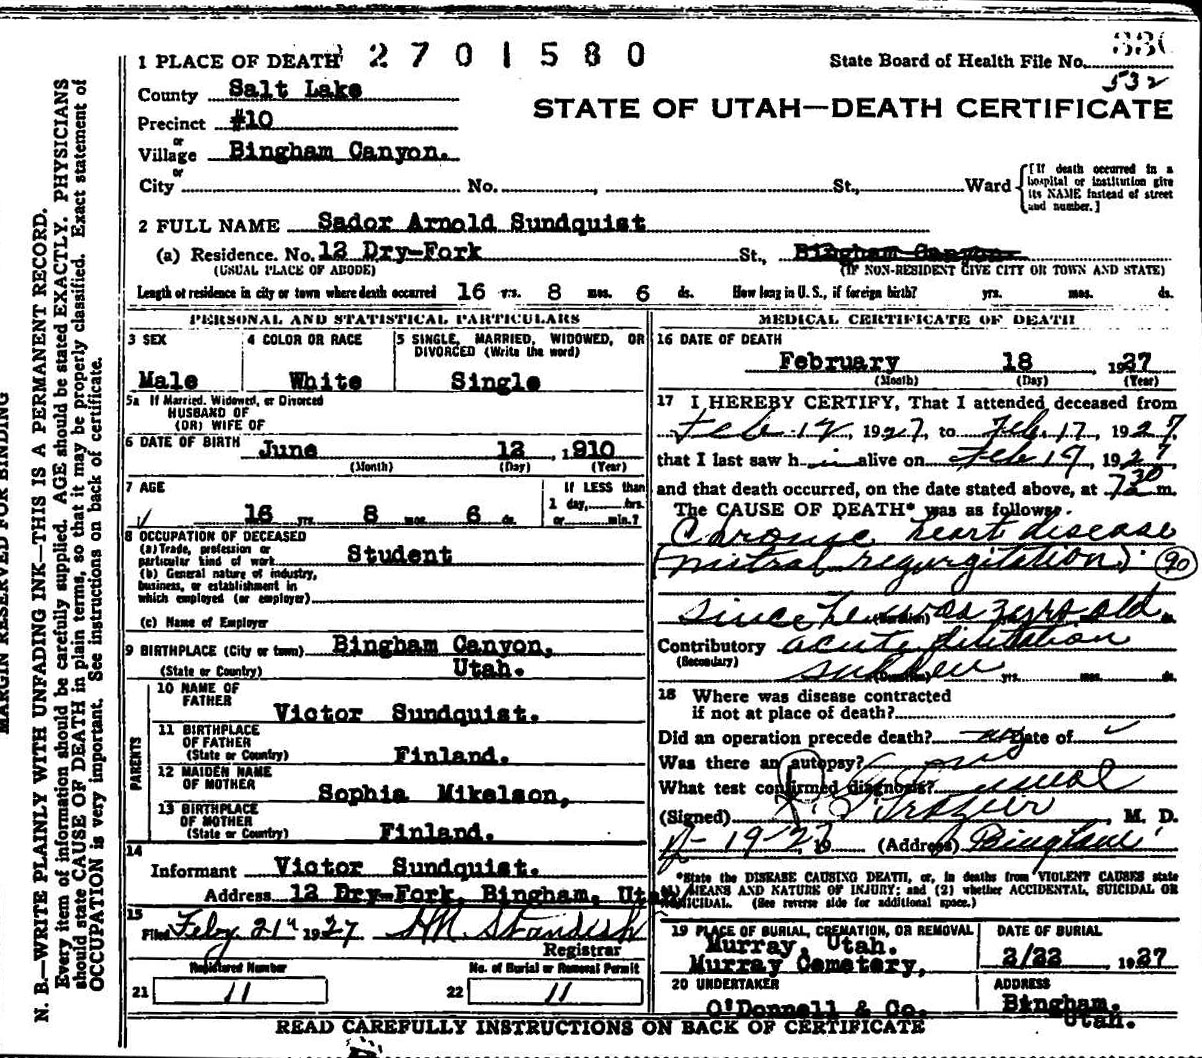 1 PLACE OF DEATH 2701580
State Board of Health File No.
532
County Salt Lake
STATE OF UTAH—DEATH CERTIFICATE
Precinct #10
or
Village Bingham Canyon.
or
City No. , St., Ward
[If death occurred in a
hospital or institution give
its NAME instead of street
and number.]
2 FULL NAME Sador Arnold Sundquist
(a) Residence. No. 12 Dry-Fork St., Bingham Canyon
(USUAL PLACE OF ABODE) (IF NON-RESIDENT GIVE CITY OR TOWN AND STATE)
Length of residence in city or town where death occurred 16 yrs. 8 mos. 6 ds. How long in U. S., if foreign birth? yrs. mos. ds.
PERSONAL AND STATISTICAL PARTICULARS
3 SEX
Male
4 COLOR OR RACE
White
5 SINGLE, MARRIED, WIDOWED, OR
DIVORCED (Write the word)
Single
5a If Married, Widowed, or Divorced
HUSBAND OF
(OR) WIFE OF
6 DATE OF BIRTH
June 12, 1910
(Month) (Day) (Year)
7 AGE
16 yrs. 8 mos. 6 ds.
If LESS than
1 day, hrs.
or min.?
8 OCCUPATION OF DECEASED
(a) Trade, profession or
particular kind of work Student
(b) General nature of industry,
business, or establishment in
which employed (or employer)
(c) Name of Employer
9 BIRTHPLACE (City or town) Bingham Canyon,
(State or Country) Utah.
PARENTS
10 NAME OF
FATHER
Victor Sundquist.
11 BIRTHPLACE
OF FATHER
(State or Country) Finland.
12 MAIDEN NAME
OF MOTHER
Sophia Mikelson,
13 BIRTHPLACE
OF MOTHER
(State or Country) Finland.
14
Informant Victor Sundquist.
Address 12 Dry-Fork, Bingham, Uta
15
Filed Feby 21st 1927 HM Standish
Registrar
Registered Number
21 11
No. of Burial or Removal Permit
22 11
MEDICAL CERTIFICATE OF DEATH
16 DATE OF DEATH
February 18 , 1927
(Month) (Day) (Year)
17 I HEREBY CERTIFY, That I attended deceased from
Feb 12, 1927, to Feb. 17, 1927,
that I last saw h im alive on Feb 17, 1927
and that death occurred, on the date stated above, at 7 30 m.
The CAUSE OF DEATH* was as follows.
Chronic heart disease
(mitral regurgitation) 90
since he was old
Contributory acute dilitation
(Secondary)
sudden yrs. mos. ds.
18 Where was disease contracted
if not at place of death?
Did an operation precede death? no Date of
Was there an autopsy? no
What test confirmed diagnosis? usual
(Signed) Frazier, M. D.
19-27 19 (Address) Bingham
*State the DISEASE CAUSING DEATH, or, in deaths from VIOLENT CAUSES state
(1) MEANS AND NATURE OF INJURY; and (2) whether ACCIDENTAL, SUICIDAL OR
HOMICIDAL. (See reverse side for additional space.)
19 PLACE OF BURIAL, CREMATION, OR REMOVAL
Murray, Utah.
Murray Cemetery,
DATE OF BURIAL
2/22, 1927
20 UNDERTAKER
O'Donnell & Co.
ADDRESS
Bingham,
Utah.
READ CAREFULLY INSTRUCTIONS ON BACK OF CERTIFICATE
MARGIN RESERVED FOR BINDING
N. B.—WRITE PLAINLY WITH UNFADING INK—THIS IS A PERMANENT RECORD.
Every item of information should be carefully supplied. AGE should be stated EXACTLY. PHYSICIANS
should state CAUSE OF DEATH in plain terms, so that it may be properly classified. Exact statement of
OCCUPATION is very important. See instructions on back of certificate.